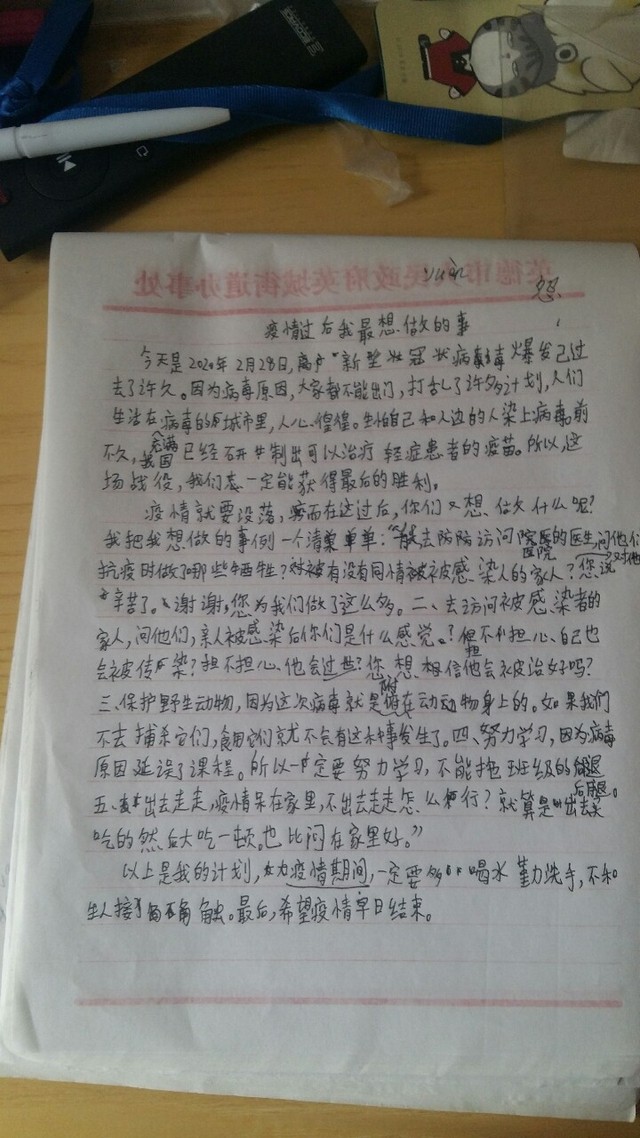 英德市人民政府英城街道办事处
yuàn
怨
疫情过后我最想做的事
今天是2020年2月28日,离"新型冠状病毒"爆发已过
去了许久。因为病毒原因,大家都不能出门,打乱了许多计划,人们
生活在病毒的城市里,人心惶惶。生怕自己和人边的人染上病毒。前
不久,我国已经研制出可以治疗轻症患者的疫苗。所以,这
场战役,我们一定能获得最后的胜利。
疫情就要段落,而在这过后,你们又想做什么呢?
我把我想做的事例一个清单:"一、去访问医院的医生,问他们
抗疫时做了哪些牺牲?有没有同情被感染人的家人?对他说
您辛苦了。谢谢,您为我们做了这么多。二、去访问被感染者的
家人,问他们,亲人被感染后你们是什么感觉。?担不担心自己也
会被传染?担不担心他会过世?您想想相信他会被治好吗?
三、保护野生动物,因为这次病毒就是附在动物身上的。如果我们
不去捕杀它们,食用它们就不会有这种事发生了。四、努力学习,因为病毒
原因延误了课程。所以一定要努力学习,不能拖班级的后腿。
五、出去走走,疫情呆在家里,不出去走走怎么行?就算是出去买
吃的然后大吃一顿。也比闷在家里好。"
以上是我的计划,为疫情期间,一定要多喝水 勤洗手,不和
生人接触。最后,希望疫情早日结束。